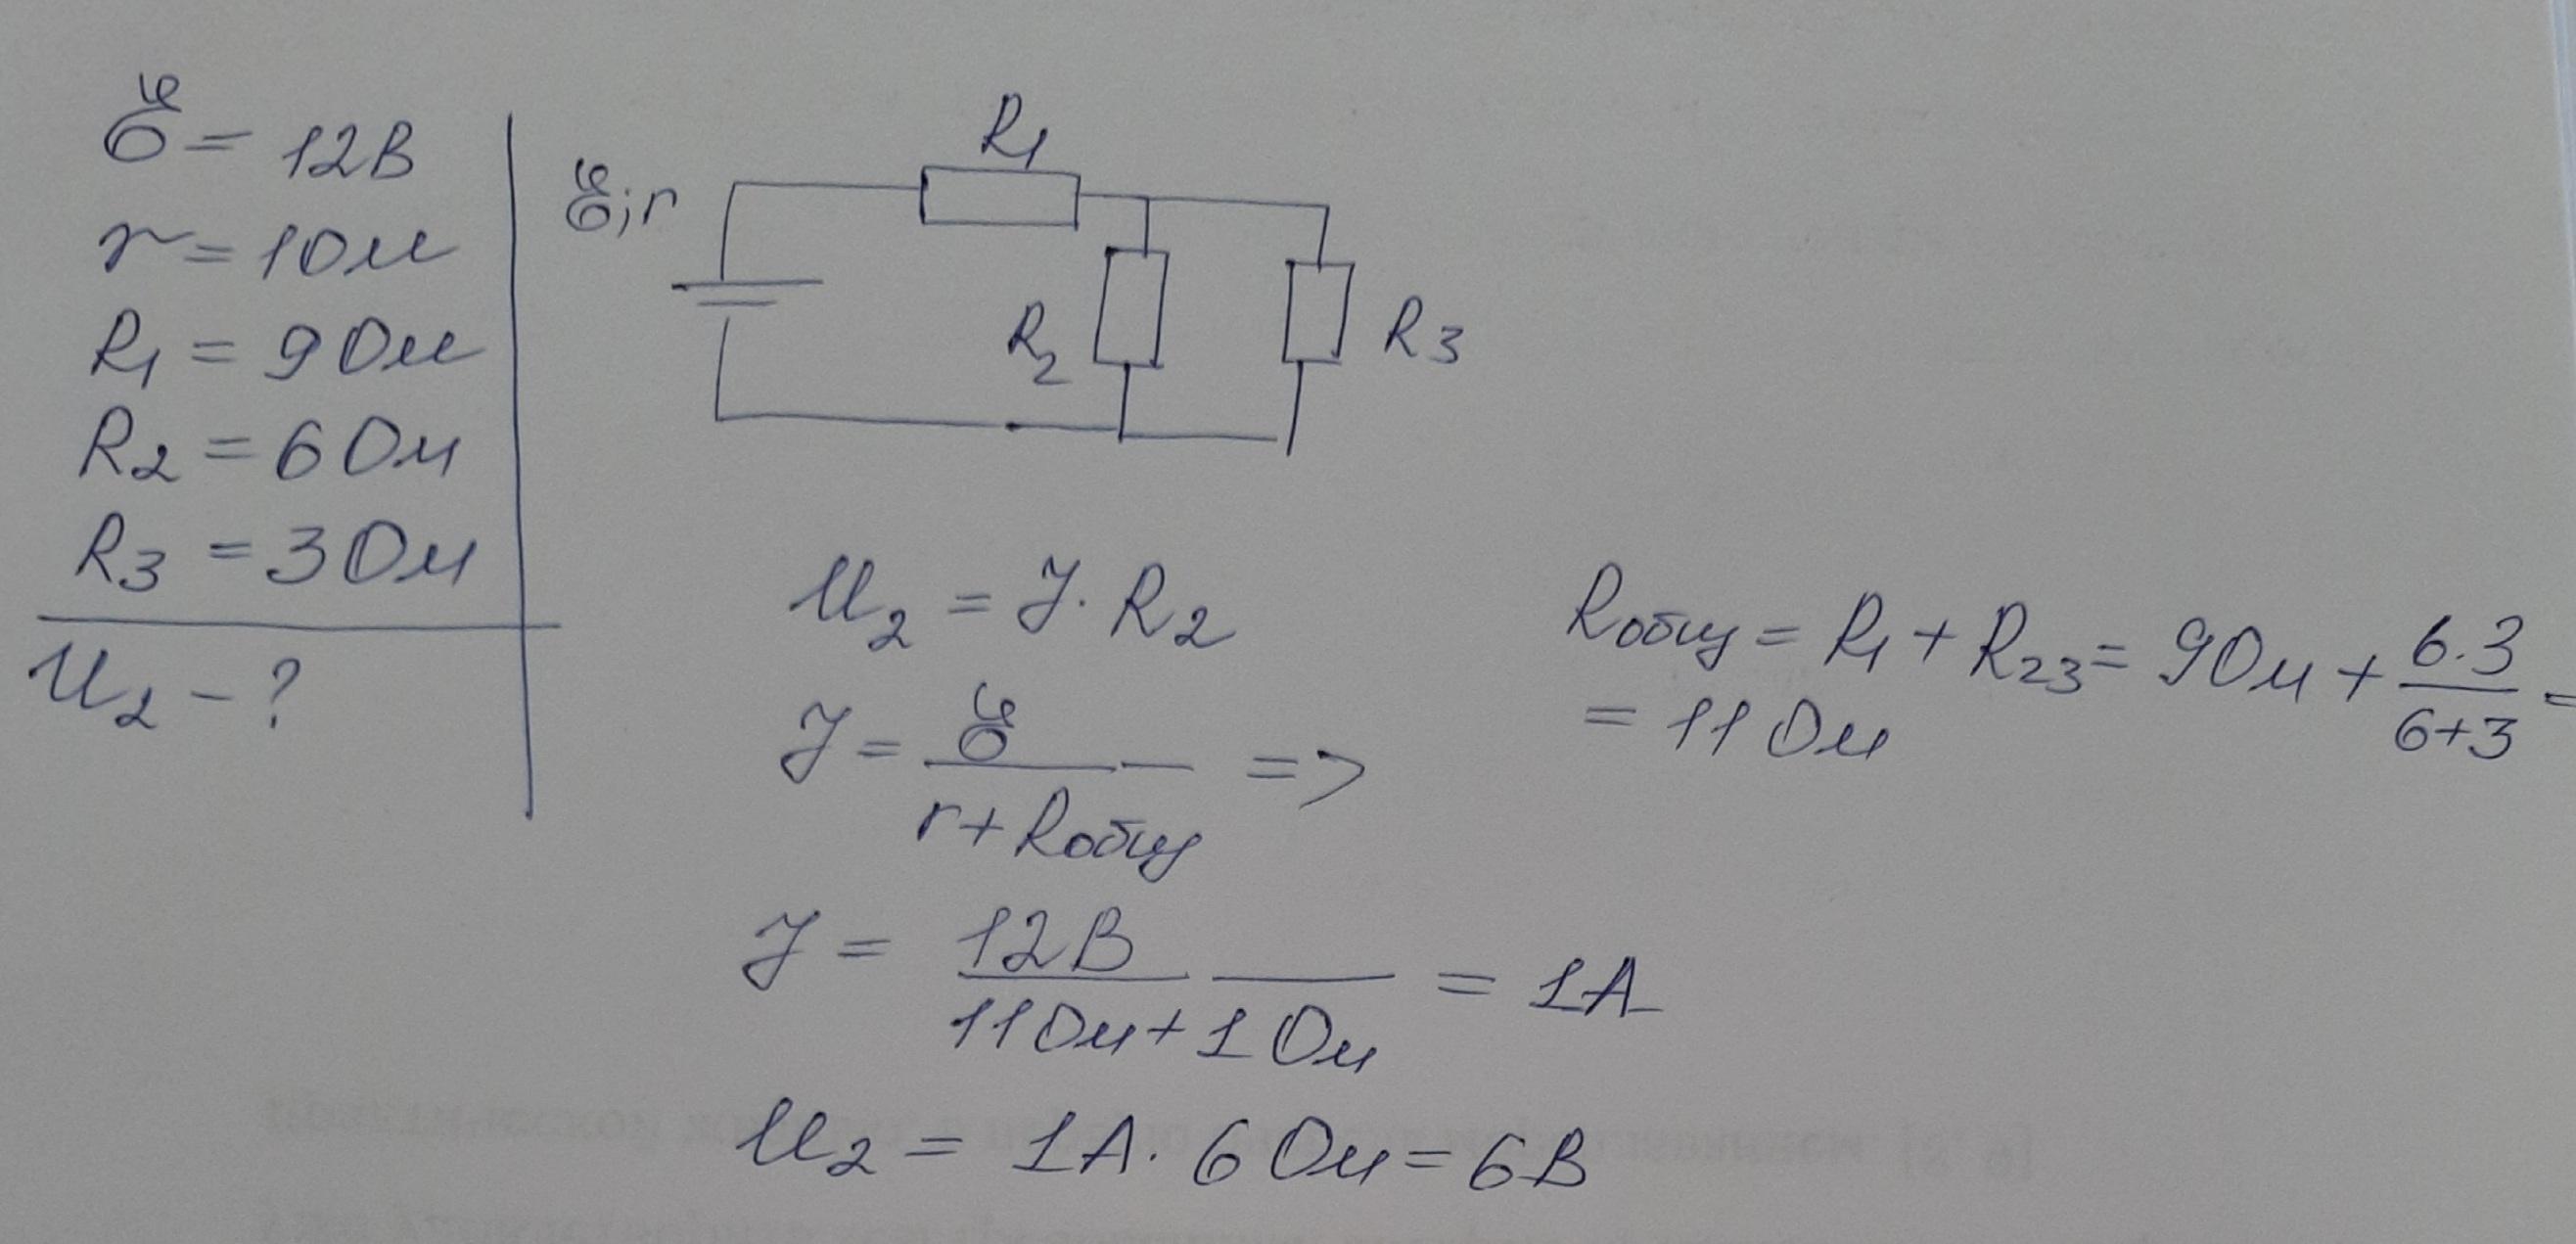 ℰ = 12В
r = 1Ом
R1 = 9Ом
R2 = 6Ом
R3 = 3Ом
U2 - ?
ℰ; r
R1
R2
R3
U2 = J · R2
J = ℰ / (r + Rобщ) =>
J = 12В / (11Ом + 1Ом) = 1А
U2 = 1А · 6Ом = 6В
Rобщ = R1 + R23 = 9Ом + 6·3 / (6+3) =
= 11Ом